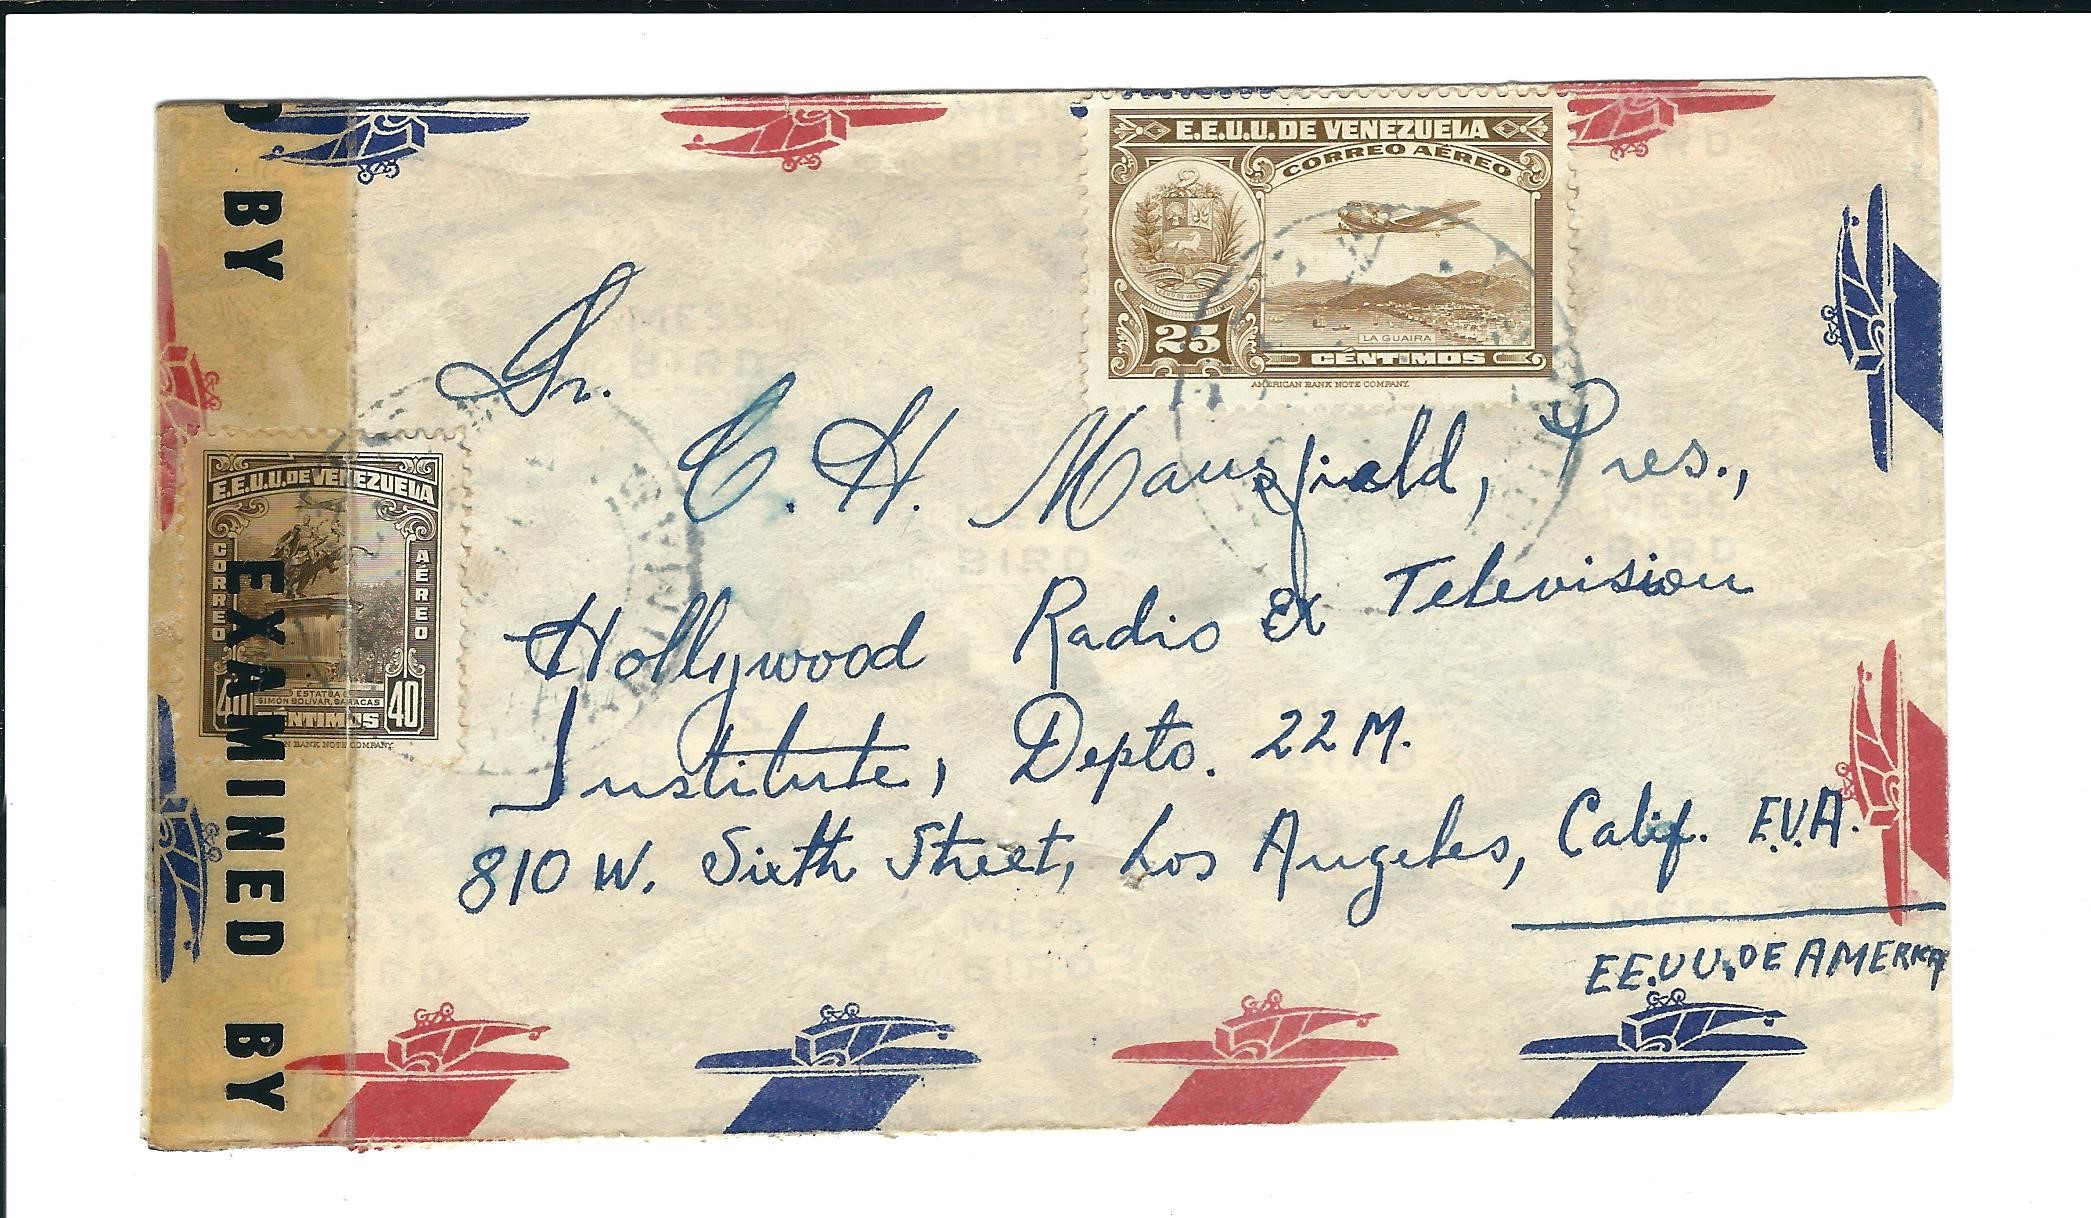 E.E.U.U.DE VENEZUELA
CORREO AÉREO
25
LA GUAIRA
CÉNTIMOS
AMERICAN BANK NOTE COMPANY.
BY
EXAMINED BY
E.E.U.U.DE VENEZUELA
CORREO
AÉREO
ESTATUA
SIMON BOLIVAR, CARACAS
40 CÉNTIMOS 40
BANK NOTE COMPANY.
Sr.
C. H. Mansfield, Pres.,
Hollywood Radio & Television
Institute, Depto. 22 M.
810 W. Sixth Street, Los Angeles, Calif. E.U.A.
EE.UU. DE AMERICA